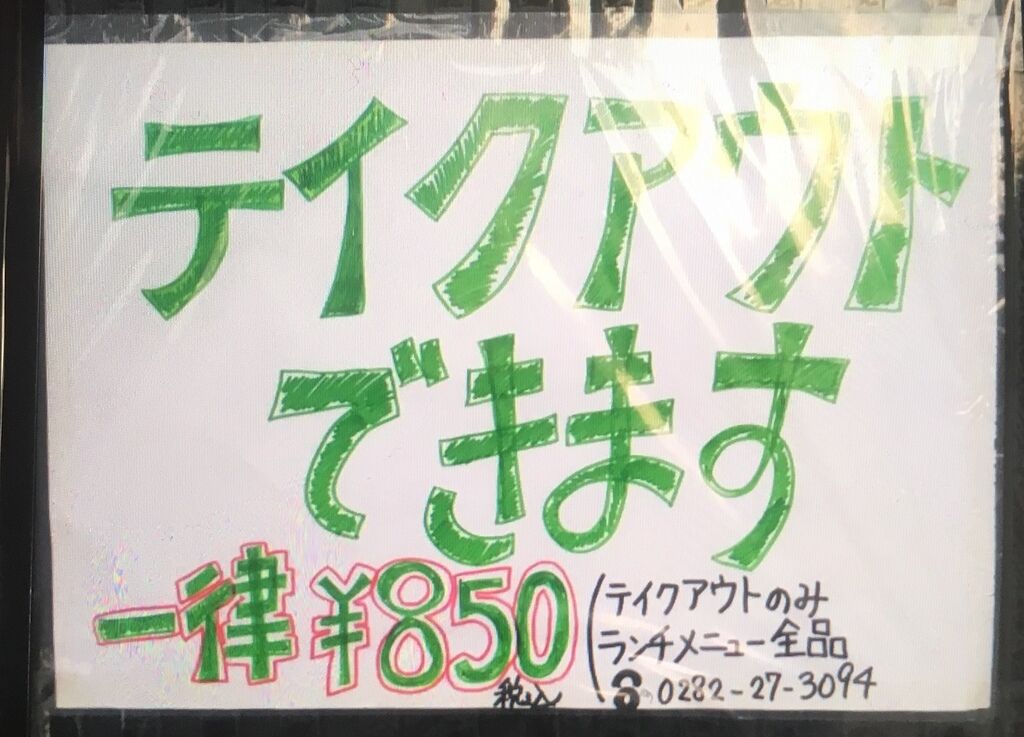 テイクアウト
できます
一律 ¥850
税込
テイクアウトのみ
ランチメニュー全品
☎ 0282-27-3094